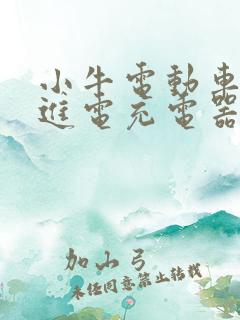 小牛電動車
進電充電器
加山弓
未經同意禁止轉載